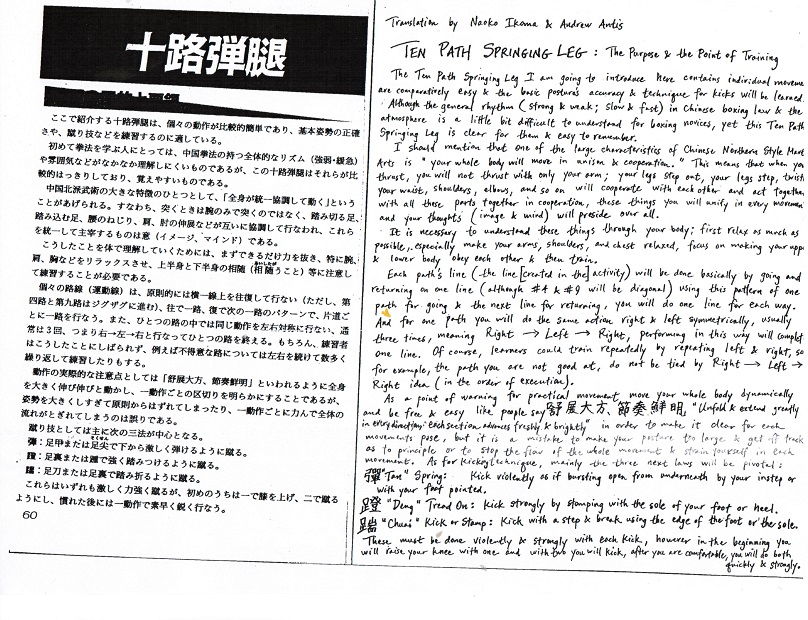 十路弾腿
ここで紹介する十路弾腿は、個々の動作が比較的簡単であり、基本姿勢の正確
さや、蹴り技などを練習するのに適している。
初めて拳法を学ぶ人にとっては、中国拳法の持つ全体的なリズム（強弱・緩急）
や雰囲気などがなかなか理解しにくいものであるが、この十路弾腿はそれらが比
較的はっきりしており、覚えやすいものである。
中国北派武術の大きな特徴のひとつとして、「全身が統一協調して動く」という
ことがあげられる。すなわち、突くときは腕のみで突くのではなく、踏み切る足、
踏み込む足、腰のねじり、肩、肘の伸展などが互いに協調して行なわれ、これら
を統一して主宰するものは意（イメージ、マインド）である。
こうしたことを体で理解していくためには、まずできるだけ力を抜き、特に腕、
肩、胸などをリラックスさせ、上半身と下半身の相随（相随うこと）等に注意し
て練習することが必要である。
個々の路線（運動線）は、原則的には横一線上を往復して行ない（ただし、第
四路と第九路はジグザグに進む）、往で一路、復で次の一路のパターンで、片道ご
とに一路を行なう。また、ひとつの路の中では同じ動作を左右対称に行ない、通
常は3回、つまり右→左→右と行なってひとつの路を終える。もちろん、練習者
はこうしたことにしばられず、例えば不得意な路については左右を続けて数多く
繰り返して練習したりもする。
動作の実際的な注意点としては「舒展大方、節奏鮮明」といわれるように全身
を大きく伸び伸びと動かし、一動作ごとの区切りを明らかにすることであるが、
姿勢を大きくしすぎて原則からはずれてしまったり、一動作ごとに力んで全体の
流れがとぎれてしまうのは誤りである。
蹴り技としては主に次の三法が中心となる。
彈：足甲または足尖で下から激しく弾けるように蹴る。
蹬：足裏または踵で強く踏みつけるように蹴る。
踹：足刀または足裏で踏み折るように蹴る。
これらはいずれも激しく力強く蹴るが、初めのうちは一で膝を上げ、二で蹴る
ようにし、慣れた後には一動作で素早く鋭く行なう。
60
Translation by Naoko Ikoma & Andrew Antis
TEN PATH SPRINGING LEG : The Purpose & the Point of Training
The Ten Path Springing Leg I am going to introduce here contains individual moveme
are comparatively easy & the basic posture's accuracy & technique for kicks will be learned.
Although the general rhythm (strong & weak; slow & fast) in Chinese boxing law & the
atmosphere is a little bit difficult to understand for boxing novices, yet this Ten Path
Springing Leg is clear for them & easy to remember.
I should mention that one of the large characteristics of Chinese Northern Style Mart
Arts is "your whole body will move in unison & cooperation." This means that when you
thrust, you will not thrust with only your arm; your legs step out, your legs step, twist
your waist, shoulders, elbows, and so on will cooperate with each other and act together
with all these parts together in cooperation, these things you will unify in every movemen
and your thoughts (image & mind) will preside over all.
It is necessary to understand these things through your body; first relax as much as
possible, especially make your arms, shoulders, and chest relaxed, focus on making your upp
& lower body obey each other & then train.
Each path's line (the line [created in the] activity) will be done basically by going and
returning on one line (although #4 & #9 will be diagonal) using this pattern of one
path for going & the next line for returning, you will do one line for each way.
And for one path you will do the same action right & left symmetrically, usually
three times, meaning Right → Left → Right, performing in this way will complet
one line. Of course, learners could train repeatedly by repeating left & right, so
for example, the path you are not good at, do not be tied by Right → Left →
Right idea (in the order of execution).
As a point of warning for practical movement move your whole body dynamically
and be free & easy like people say 舒展大方、節奏鮮明, "Unfold & extend greatly
in every direction; each section, address freshly & brightly" in order to make it clear for each
movements pose, but it is a mistake to make your posture too large & get off track
as to principle or to stop the flow of the whole movement & strain yourself in each
movement. As for kicking technique, mainly the three next laws will be pivotal:
彈 "Tan" Spring: Kick violently as if bursting open from underneath by your instep or
with your foot pointed.
蹬 "Deng" Tread On: Kick strongly by stomping with the sole of your foot or heel.
踹 "Chuai" Kick or Stamp: Kick with a step & break using the edge of the foot or the sole.
These must be done violently & strongly with each kick, however in the beginning you
will raise your knee with one and with two you will kick, after you are comfortable, you will do both
quickly & strongly.